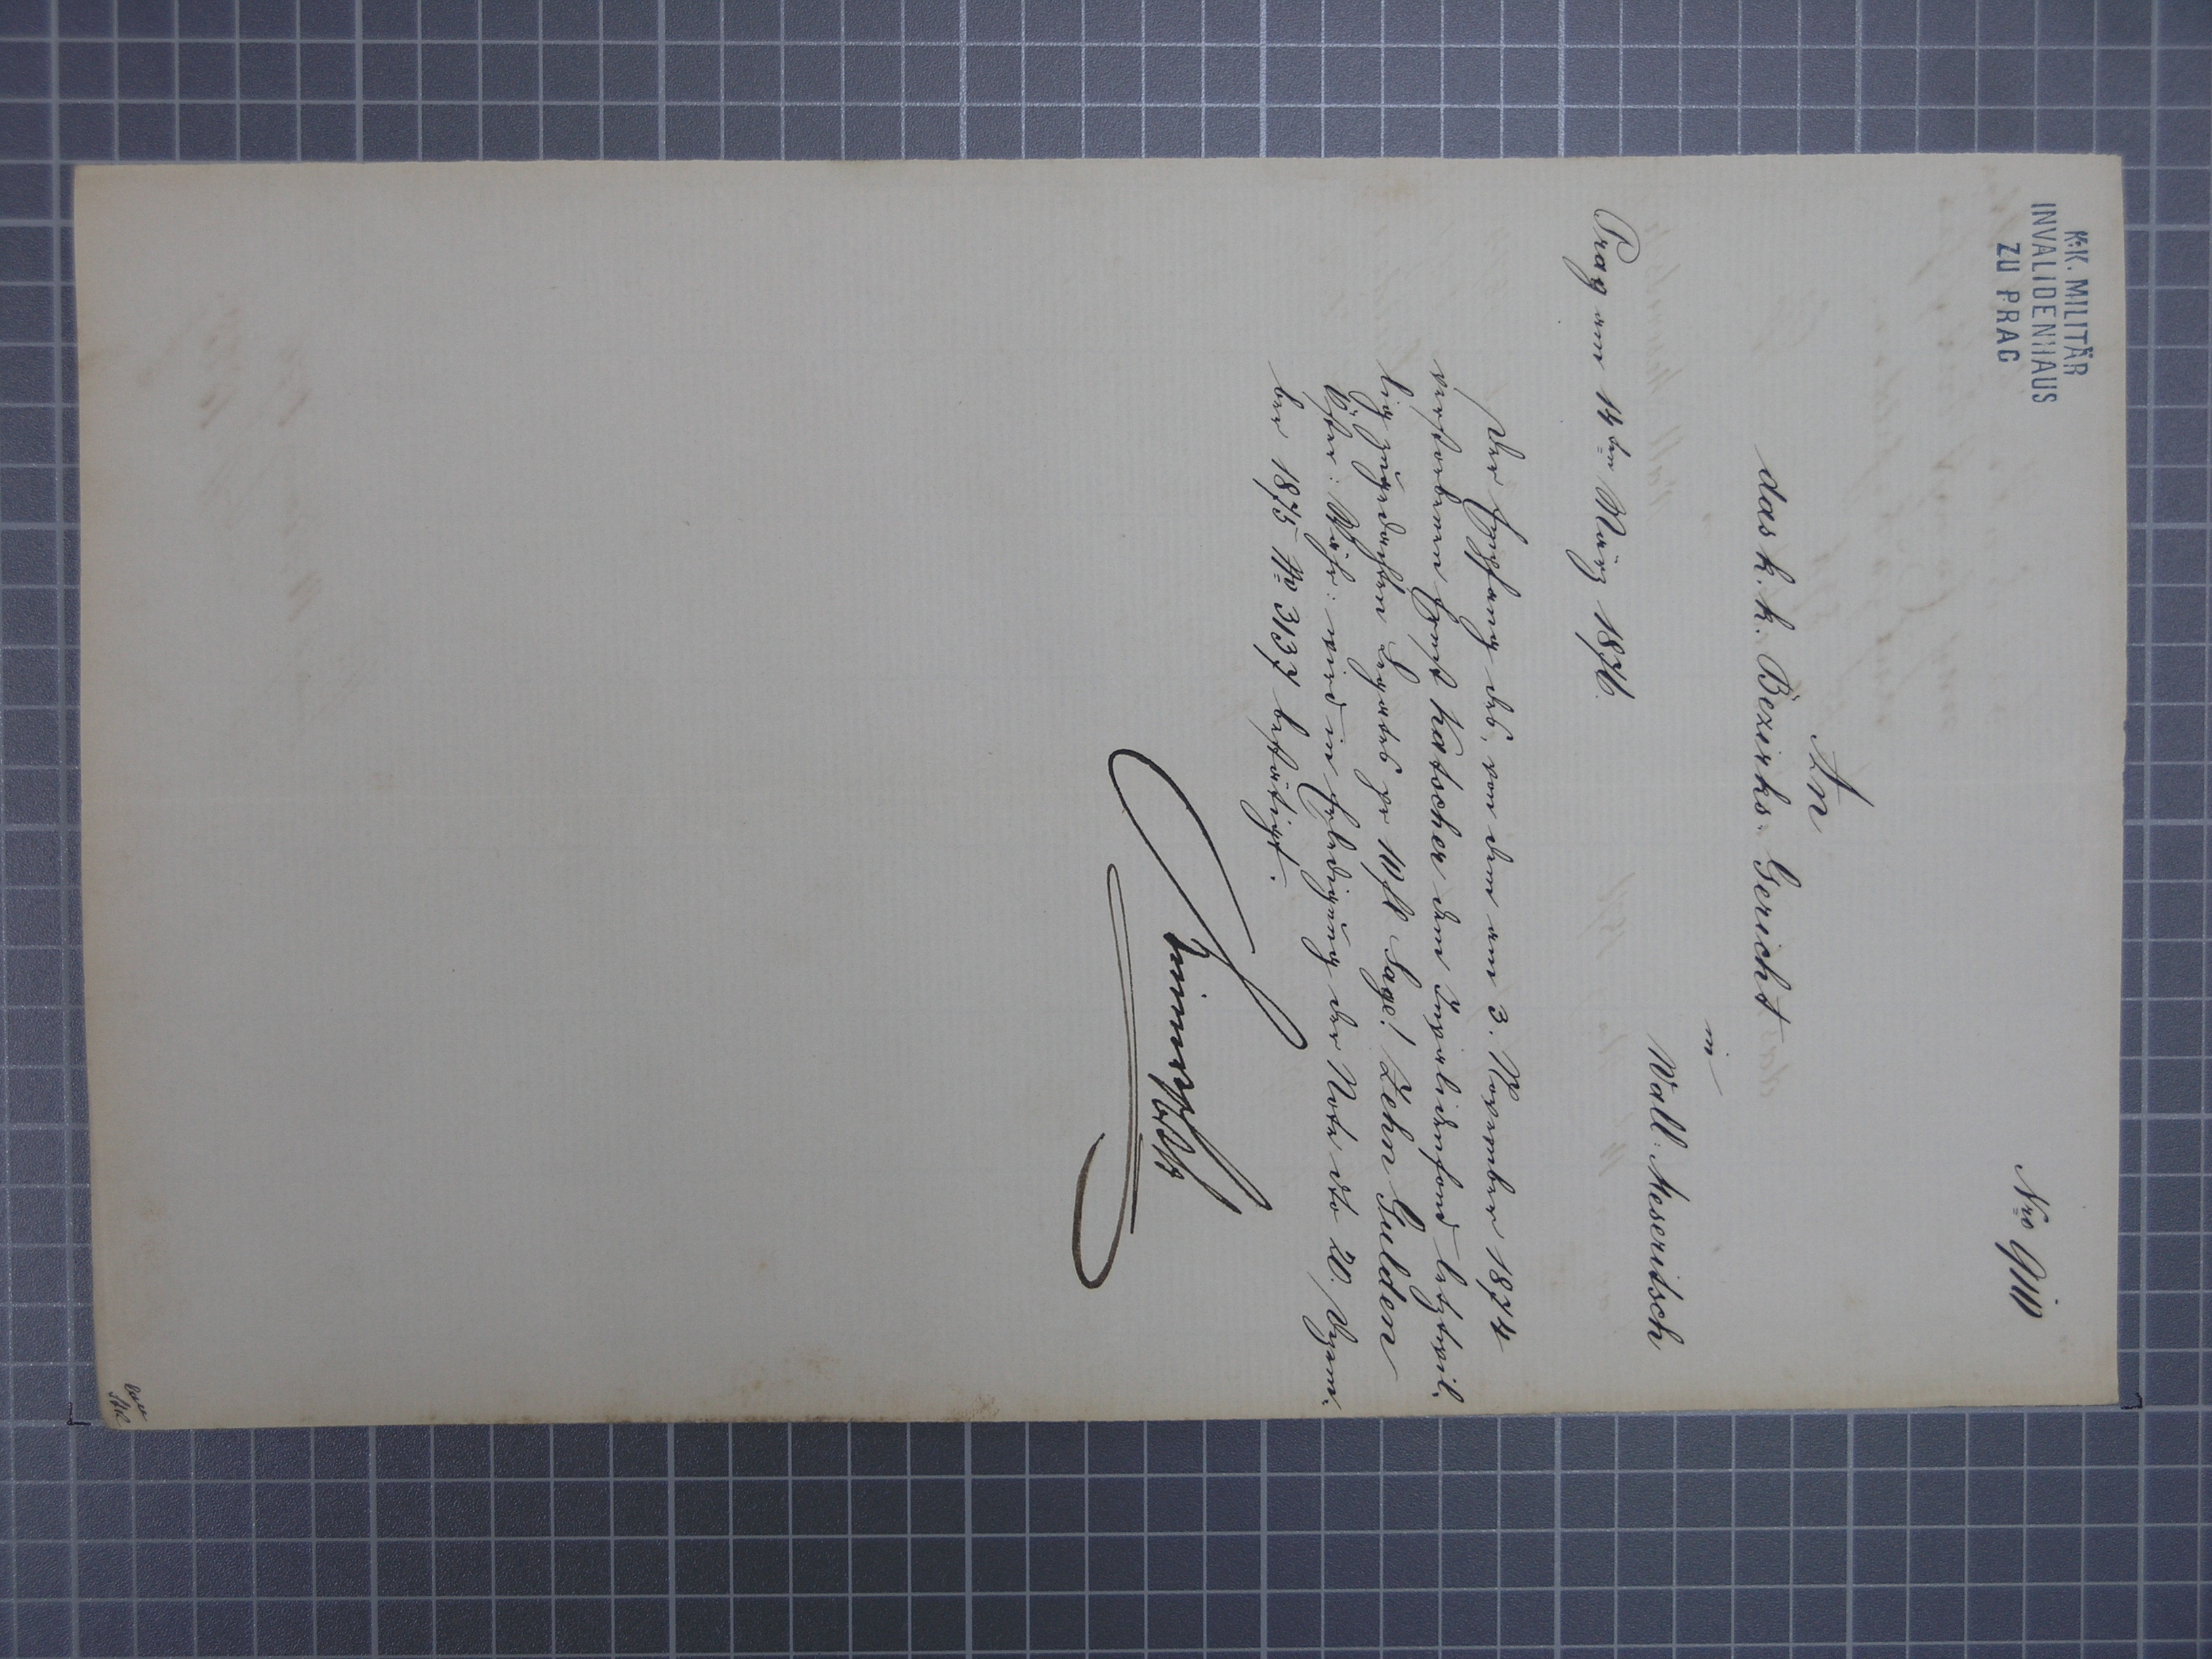 K.K. MILITÄR
INVALIDENHAUS
ZU PRAG
Nro 9110
An
das k. k. Bezirks-Gericht
in
Wall: Meseritsch
Prag am 14ten März 1876.
Der Empfang des, von dem am 3. November 1874
verstorbenen Ernst Katscher dem Invalidenfond letztwil-
lig zugedachten Legates pr 10 fl Sage! Zehn Gulden
Öster: Währ: wird in Erledigung der Note dto 20. Dezem-
ber 1875 No 3137 bestätigt.